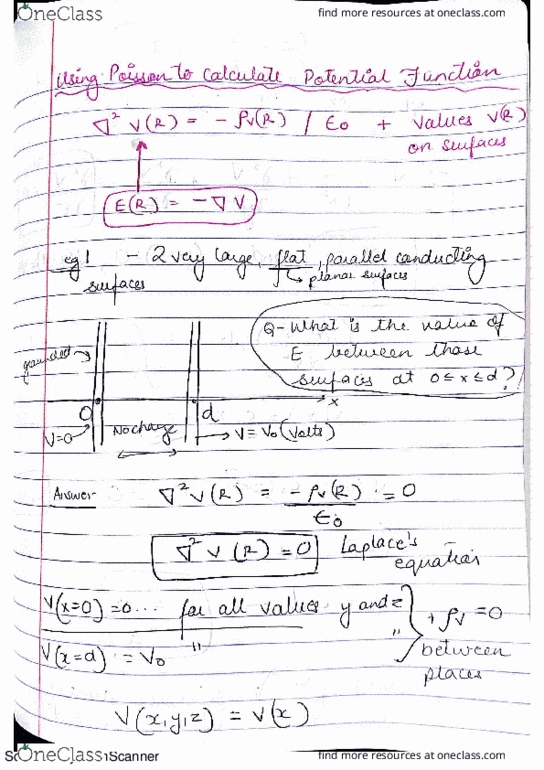 OneClass
find more resources at oneclass.com
Using Poisson to Calculate Potential Function
∇² V(R) = - ρv(R) / ε0 + values V(R)
on surfaces
E(R) = - ∇V
eg 1 - 2 very large, flat, parallel conducting
surfaces
↳ planar surfaces
Q- What is the value of
E between those
surfaces at 0 ≤ x ≤ d?
grounded →
x
0
d
V=0
No charge
→ V = V0 (Volts)
Answer-
∇² V(R) = -ρv(R) = 0
ε0
∇² V(R) = 0
Laplace's
equation
V(x=0) = 0 ... for all values y and z
V(x=d) = V0 " "
+ ρv = 0
between
places
V(x,y,z) = V(x)
OneClass
Scanner
find more resources at oneclass.com